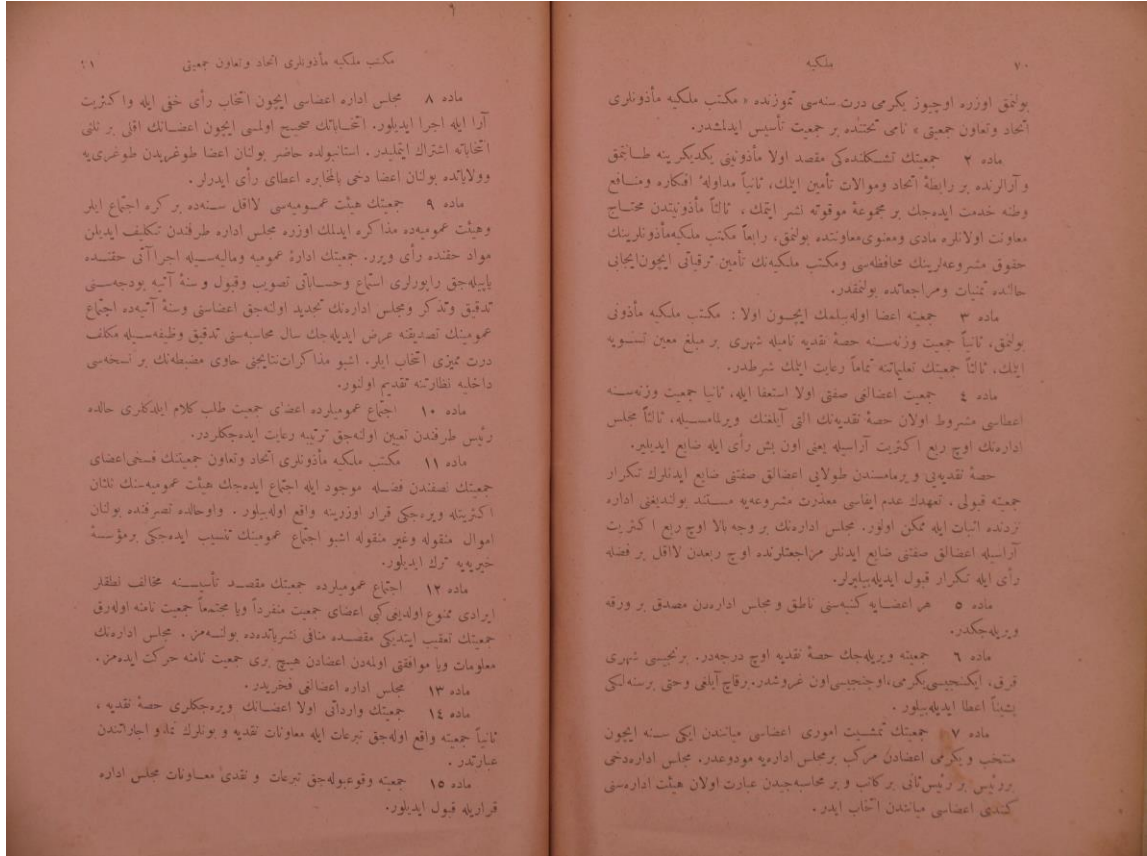 ٧٠
ملكيه
بولنمق اوزره اوچيوز يكرمى درت سنه‌سى تموزنده « مكتب ملكيه مأذونلرى
اتحاد وتعاون جمعيتى » نامى تحتنده بر جمعيت تأسيس ايدلمشدر.
ماده ٢ جمعيتك تشكلنده‌كى مقصد اولا مأذونينى يكديكر ينه طـانيتمق
و آرالرنده بر رابطهٔ اتحاد وموالات تأمين ايتمك، ثانياً مداولهٔ افكاره ومنـافع
وطنه خدمت ايده‌جك بر مجموعهٔ موقوته نشر ايتمك ، ثالثاً مأذونيتدن محتـاج
معاونت اولانلره مادى ومعنوى معاونتده بولنمق، رابعاً مكتب ملكيه مأذونلرينك
حقوق مشروعه‌لرينك محافظه‌سى ومكتب ملكيه‌نك تأمين ترقياتى ايچون ايجابى
حالنده تمنيات ومراجعاتده بولنمقدر.
ماده ٣ جمعيته اعضا اوله‌بيلمك ايچـون اولا : مكتب ملكيه مأذونى
بولنمق، ثانياً جمعيت وزنه‌سـنه حصهٔ نقديه ناميله شهرى بر مبلغ معين تسـويه
ايتمك، ثالثاً جمعيتك تعليماتنه تماماً رعايت ايتمك شرطدر.
ماده ٤ جمعيت اعضالغى صفتى اولا استعفا ايله، ثانيا جمعيت وزنه‌سـنه
اعطاسى مشروط اولان حصهٔ نقديه‌نك التى آيلغنك ويرلمامسـيله، ثالثاً مجلس
اداره‌نك اوچ ربع اكثريت آراسيله يعنى اون بش رأى ايله ضايع ايديلير.
حصهٔ نقديه‌يى ويرمامسندن طولايى اعضالق صفتنى ضايع ايدنلرك تكرار
جمعيته قبولى ، تعهدك عدم ايفاسى معذرت مشروعه‌يه مسـتند بولنديغنى اداره
نزدنده اثبات ايله ممكن اولور. مجلس اداره‌نك بر وجه بالا اوچ ربع اكثريت
آراسيله اعضالق صفتنى ضايع ايدنلر مراجعتلرنده اوچ ربعدن لااقل بر فضله
رأى ايله تكرار قبول ايديله‌بيليرلر.
ماده ٥ هر اعضـايه كنيه‌سنى ناطق و مجلس اداره‌دن مصدق بر ورقه
ويريله‌جكدر.
ماده ٦ جمعيته ويريله‌جك حصهٔ نقديه اوچ درجه‌در. برنجيسى شهرى
قرق، ايكنجيسى يكرمى، اوچنجيسى اون غروشدر. برقاچ آيلغى وحتى برسنه‌لكى
پشيناً اعطا ايديله‌بيلور .
ماده ٧ جمعيتك تمشـيت امورى اعضاسى مياننده ايكى سـنه ايچون
منتخب و يكرمى اعضادن مركب برمجلس اداره‌يه مودوعدر. مجلس اداره‌دخى
بررئيس بر رئيس ثانى بر كاتب و بر محاسبه‌جيدن عبارت اولان هيئت اداره‌سنى
كندى اعضاسى مياننده انتخاب ايدر .
مكتب ملكيه مأذونلرى اتحاد وتعاون جمعيتى
٧١
ماده ٨ مجلس اداره اعضاسى ايچون انتخاب رأى خفى ايله واكثريت
آرا ايله اجرا ايديلور. انتخـاباتك صحيح اولمسى ايچون اعضـانك اقلى بر ثلثى
انتخاباته اشتراك ايتمليدر. استانبولده حاضر بولنان اعضا طوغريدن طوغرى‌يه
وولاياتده بولنان اعضا دخى بالمخابره اعطاى رأى ايدرلر .
ماده ٩ جمعيتك هيئت عمـوميه‌سى لااقل سـنه‌ده بر كره اجتماع ايلر
وهيئت عموميه‌ده مذاكره ايدلمك اوزره مجلس اداره طرفندن تكليف ايديلن
مواد حقنده رأى ويرر. جمعيتك ادارهٔ عموميه وماليه‌سـيله اجراآتى حقنـده
ياپيله‌جق راپورلرى استماع وحسـاباتى تصويب وقبول و سنهٔ آتيه بودجه‌سـنى
تدقيق وتذكر ومجلس اداره‌نك تجديد اولنه‌جق اعضاسنى وسنهٔ آتيه‌ده اجتماع
عمومينك تصديقنه عرض ايديله‌جك سال محاسبه‌سنى تدقيق وظيفه‌سـيله مكلف
درت مميزى انتخاب ايلر. اشبو مذاكرات نتايجنى حاوى مضبطه‌نك بر نسخه‌سى
داخليه نظارتنه تقديم اولنور.
ماده ١٠ اجتماع عموميلرده اعضاى جمعيت طلب كلام ايلدكلرى حالده
رئيس طرفندن تعيين اولنه‌جق ترتيبه رعايت ايده‌جكلردر.
ماده ١١ مكتب ملكيه مأذونلرى اتحاد وتعاون جمعيتنك فسخى اعضاى
جمعيتك نصفندن فضـله موجود ايله اجتماع ايده‌جك هيئت عموميه‌سنك ثلثان
اكثريتله ويره‌جكى قرار اوزرينه واقع اوله‌بيلور . واوحالده تصرفنده بولنان
اموال منقوله وغير منقوله اشبو اجتماع عمومينك تنسيب ايده‌جكى برمؤسسهٔ
خيريه‌يه ترك ايديلور.
ماده ١٢ اجتماع عموميلرده جمعيتك مقصـد تأسيسـنه مخالف نطقلر
ايرادى ممنوع اولديغى كبى اعضاى جمعيت منفرداً ويا مجتمعاً جمعيت نامنه اوله‌رق
جمعيتك تعقيب ايتديكى مقصـده منافى نشرياتده‌ده بولنـه‌مز . مجلس اداره‌نك
معلومات ويا موافقتى اولمه‌دن اعضادن هيـچ برى جمعيت نامنه حركت ايده‌مز.
ماده ١٣ مجلس اداره اعضالغى فخريدر .
ماده ١٤ جمعيتك وارداتى اولا اعضـانك ويره‌جكلرى حصهٔ نقديه ،
ثانياً جمعيته واقع اوله‌جق تبرعات ايله معاونات نقديه و بونلرك نما و اجاراتندن
عبارتدر .
ماده ١٥ جمعيته وقوعبوله‌جق تبرعات و نقدى معـاونات مجلس اداره
قراريله قبول ايديلور.